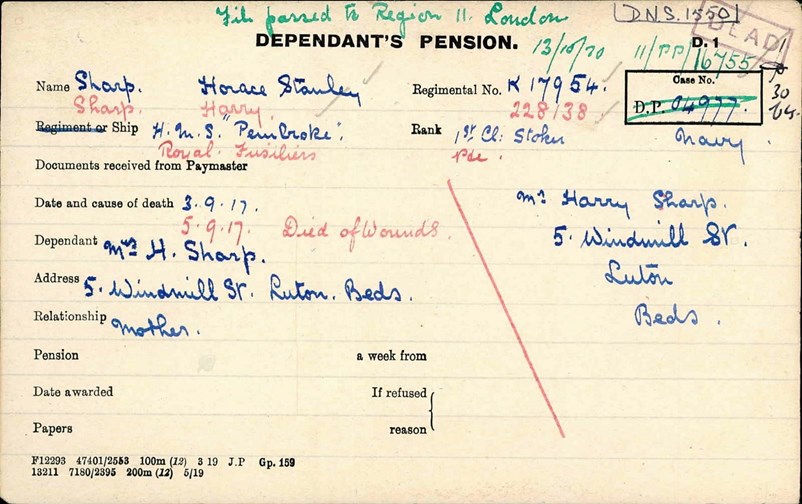 File passed to Region 11. London
D.N.S. 1550
DEAD
DEPENDANT'S PENSION. 13/10/20 11/PP/16755 D. 1
Name Sharp. Horace Stanley Regimental No. K 17954. Case No.
Sharp. Harry. 228138 D.P. 04977. 30
Regiment or Ship H.M.S. "Pembroke". Rank 1st Cl: Stoker Navy.
Royal. Fusiliers Pte.
Documents received from Paymaster
Date and cause of death 3.9.17. Mr Harry Sharp.
5.9.17. Died of Wounds.
Dependant Mrs H. Sharp. 5. Windmill St.
Address 5. Windmill St. Luton. Beds. Luton
Relationship Mother. Beds.
Pension a week from
Date awarded If refused
Papers reason
F12293 47401/2553 100m (12) 3 19 J.P Gp. 159
13211 7180/2395 200m (12) 5/19